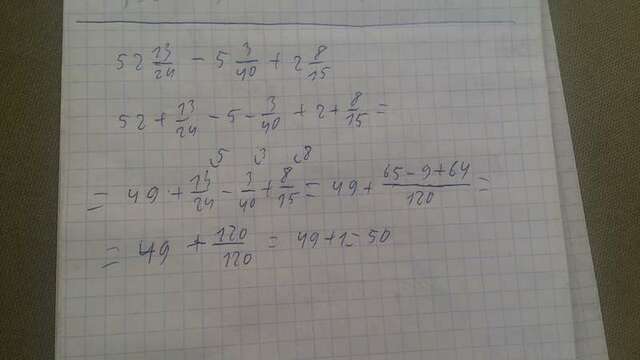 52 13/24 - 5 3/40 + 2 8/15
52 + 13/24 - 5 - 3/40 + 2 + 8/15 =
= 49 + 13/24 - 3/40 + 8/15 = 49 + (65 - 9 + 64)/120 =
= 49 + 120/120 = 49 + 1 = 50